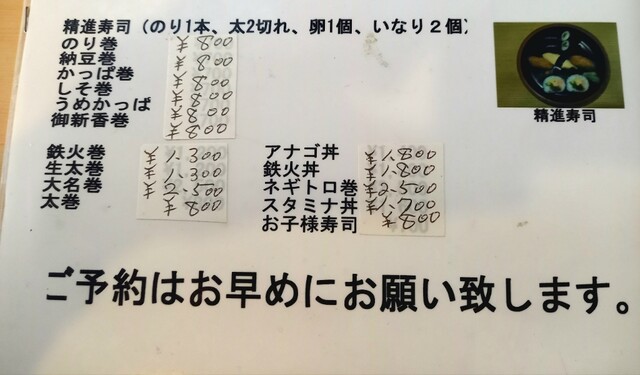 精進寿司（のり1本、太2切れ、卵1個、いなり２個）
精進寿司
のり巻 ¥800
納豆巻 ¥800
かっぱ巻 ¥800
しそ巻 ¥800
うめかっぱ ¥800
御新香巻 ¥800
鉄火巻 ¥1.300
生太巻 ¥1.300
大名巻 ¥2.500
太巻 ¥800
アナゴ丼 ¥1.800
鉄火丼 ¥1.800
ネギトロ巻 ¥2.500
スタミナ丼 ¥1.700
お子様寿司 ¥800
ご予約はお早めにお願い致します。